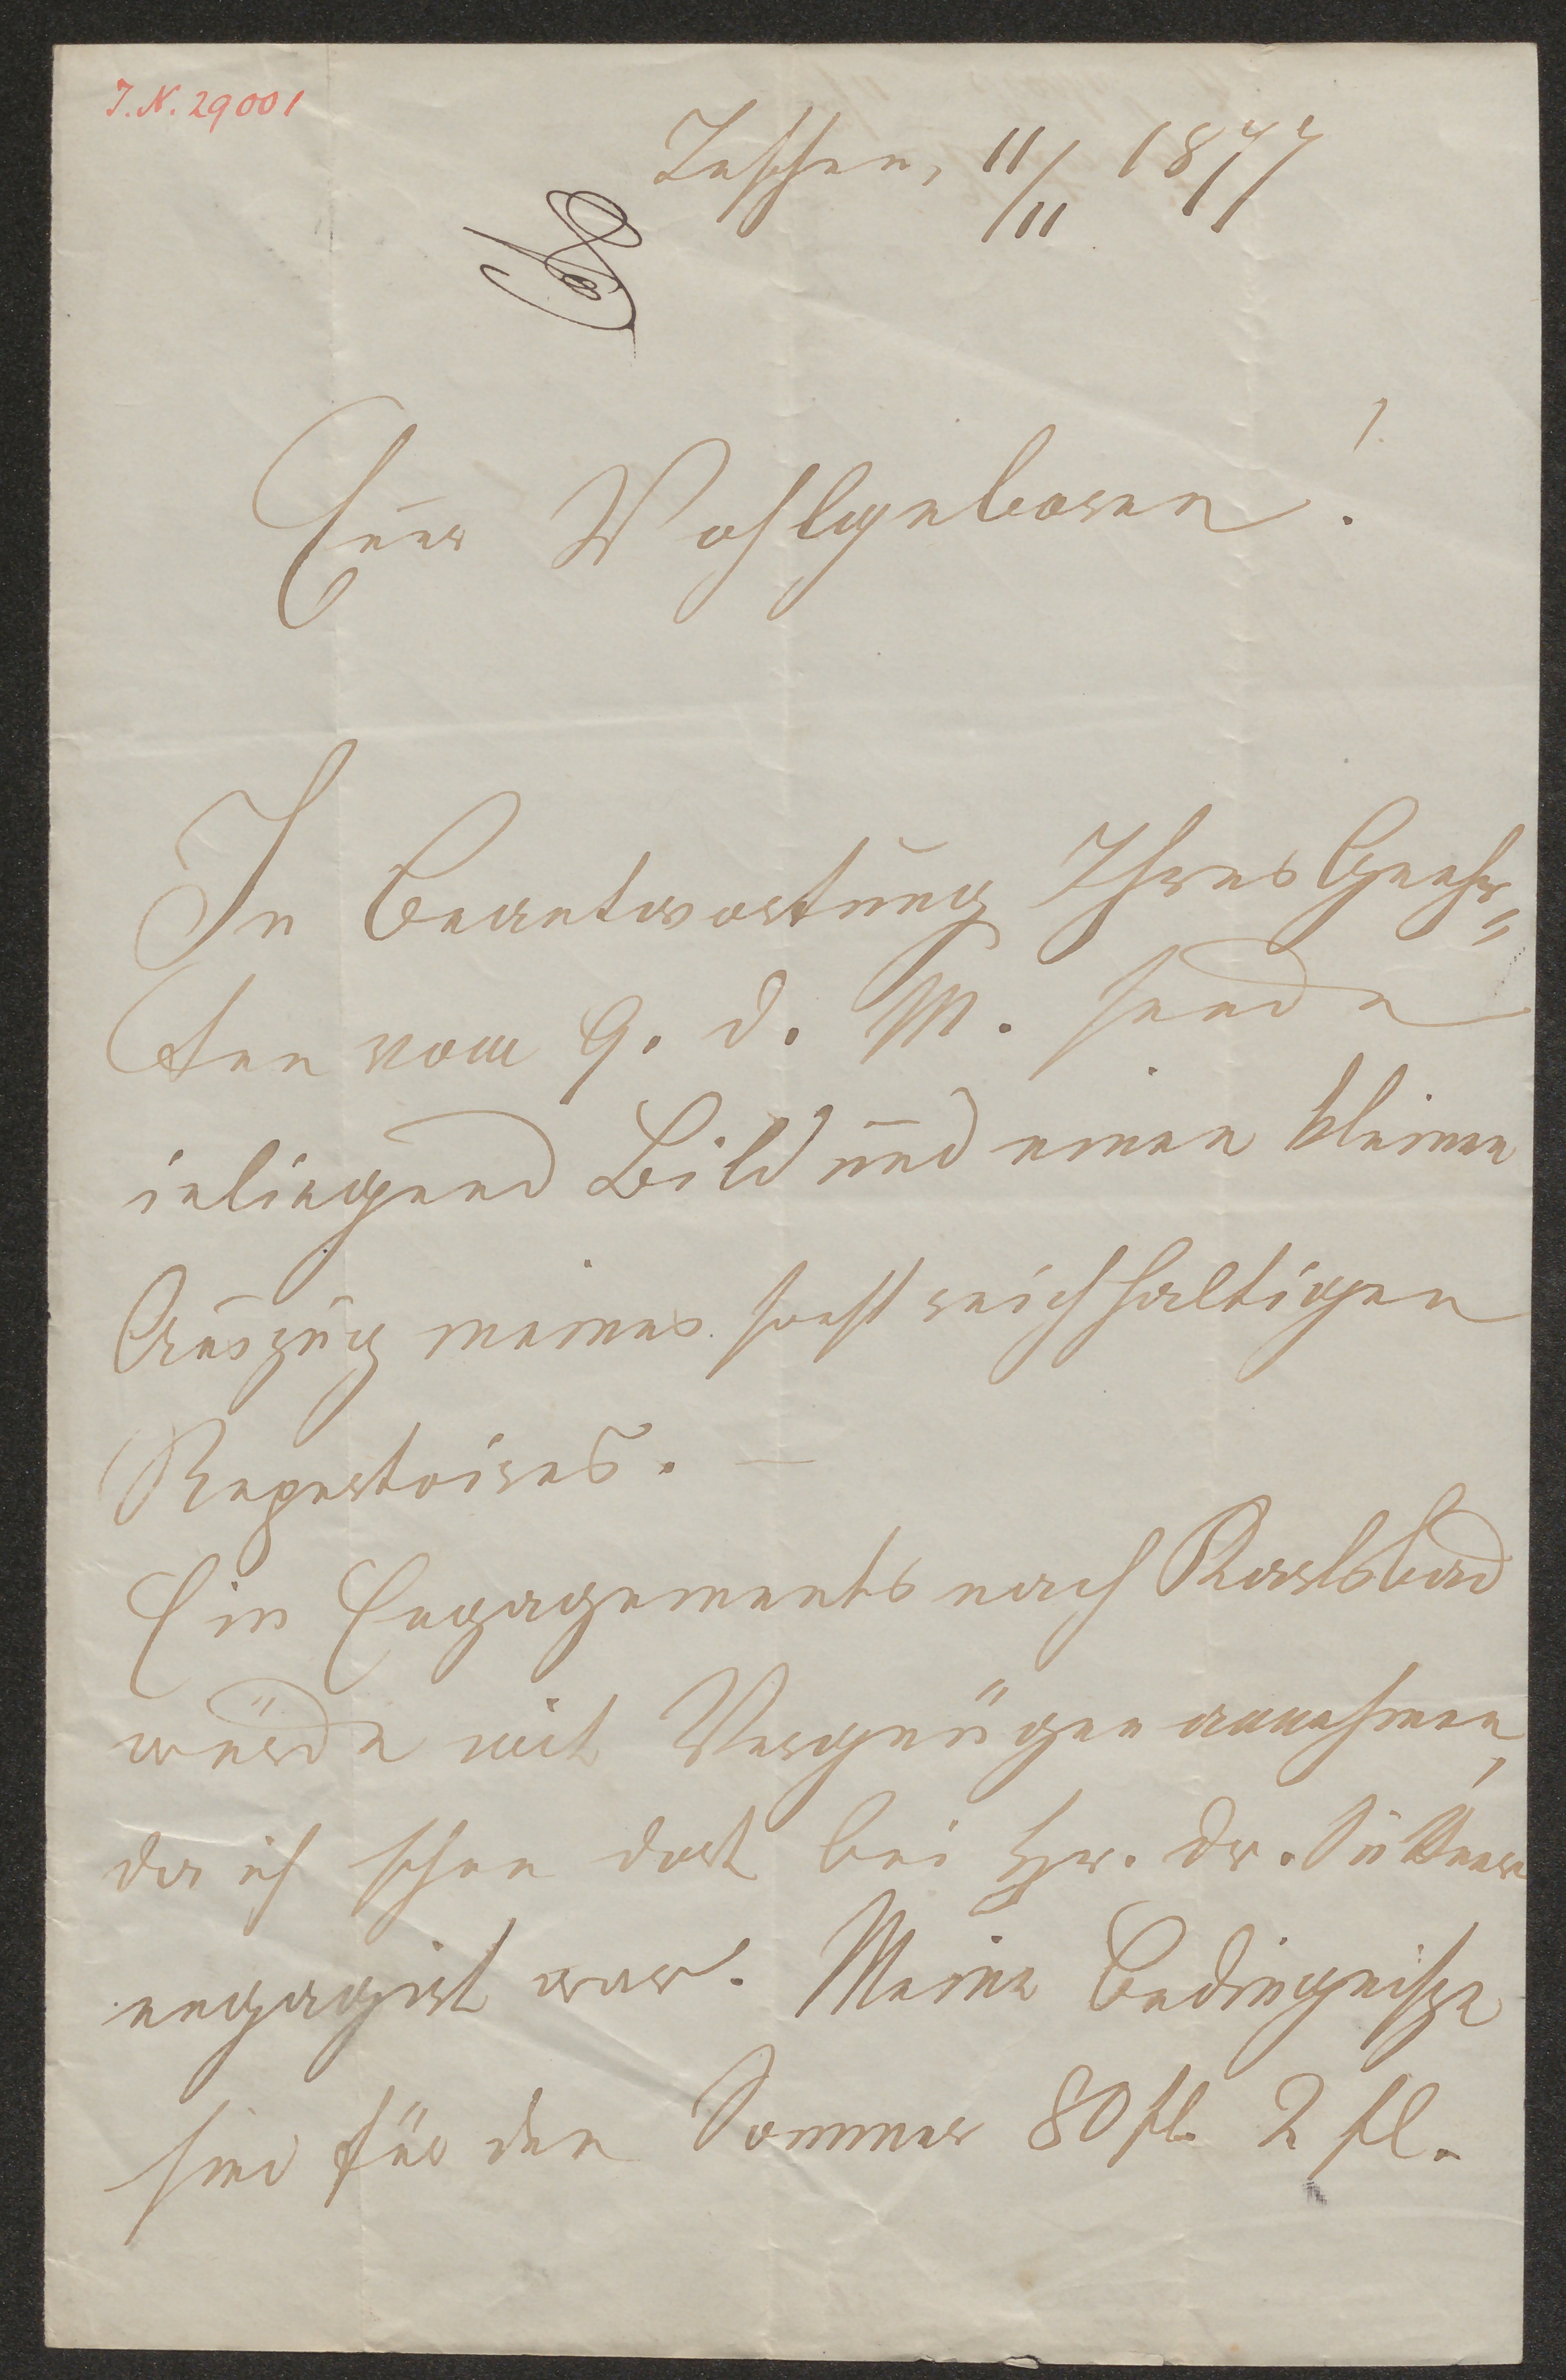 I.N. 29001
Teschen, 11/11 1877
Euer Wohlgeboren!
In Beantwortung Ihres Geehr„
ten vom 9. d. M. sende
inliegend Bild und einen kleinen
Auszug meines sonst reichhaltigen
Repertoires. —
Ein Engagements nach Karlsbad
würde mit Vergnügen annehmen,
da ich schon dort bei Hr. Dr.
engagirt war. Meine Bedingnisse
sind für den Sommer 80 fl. 2 fl.